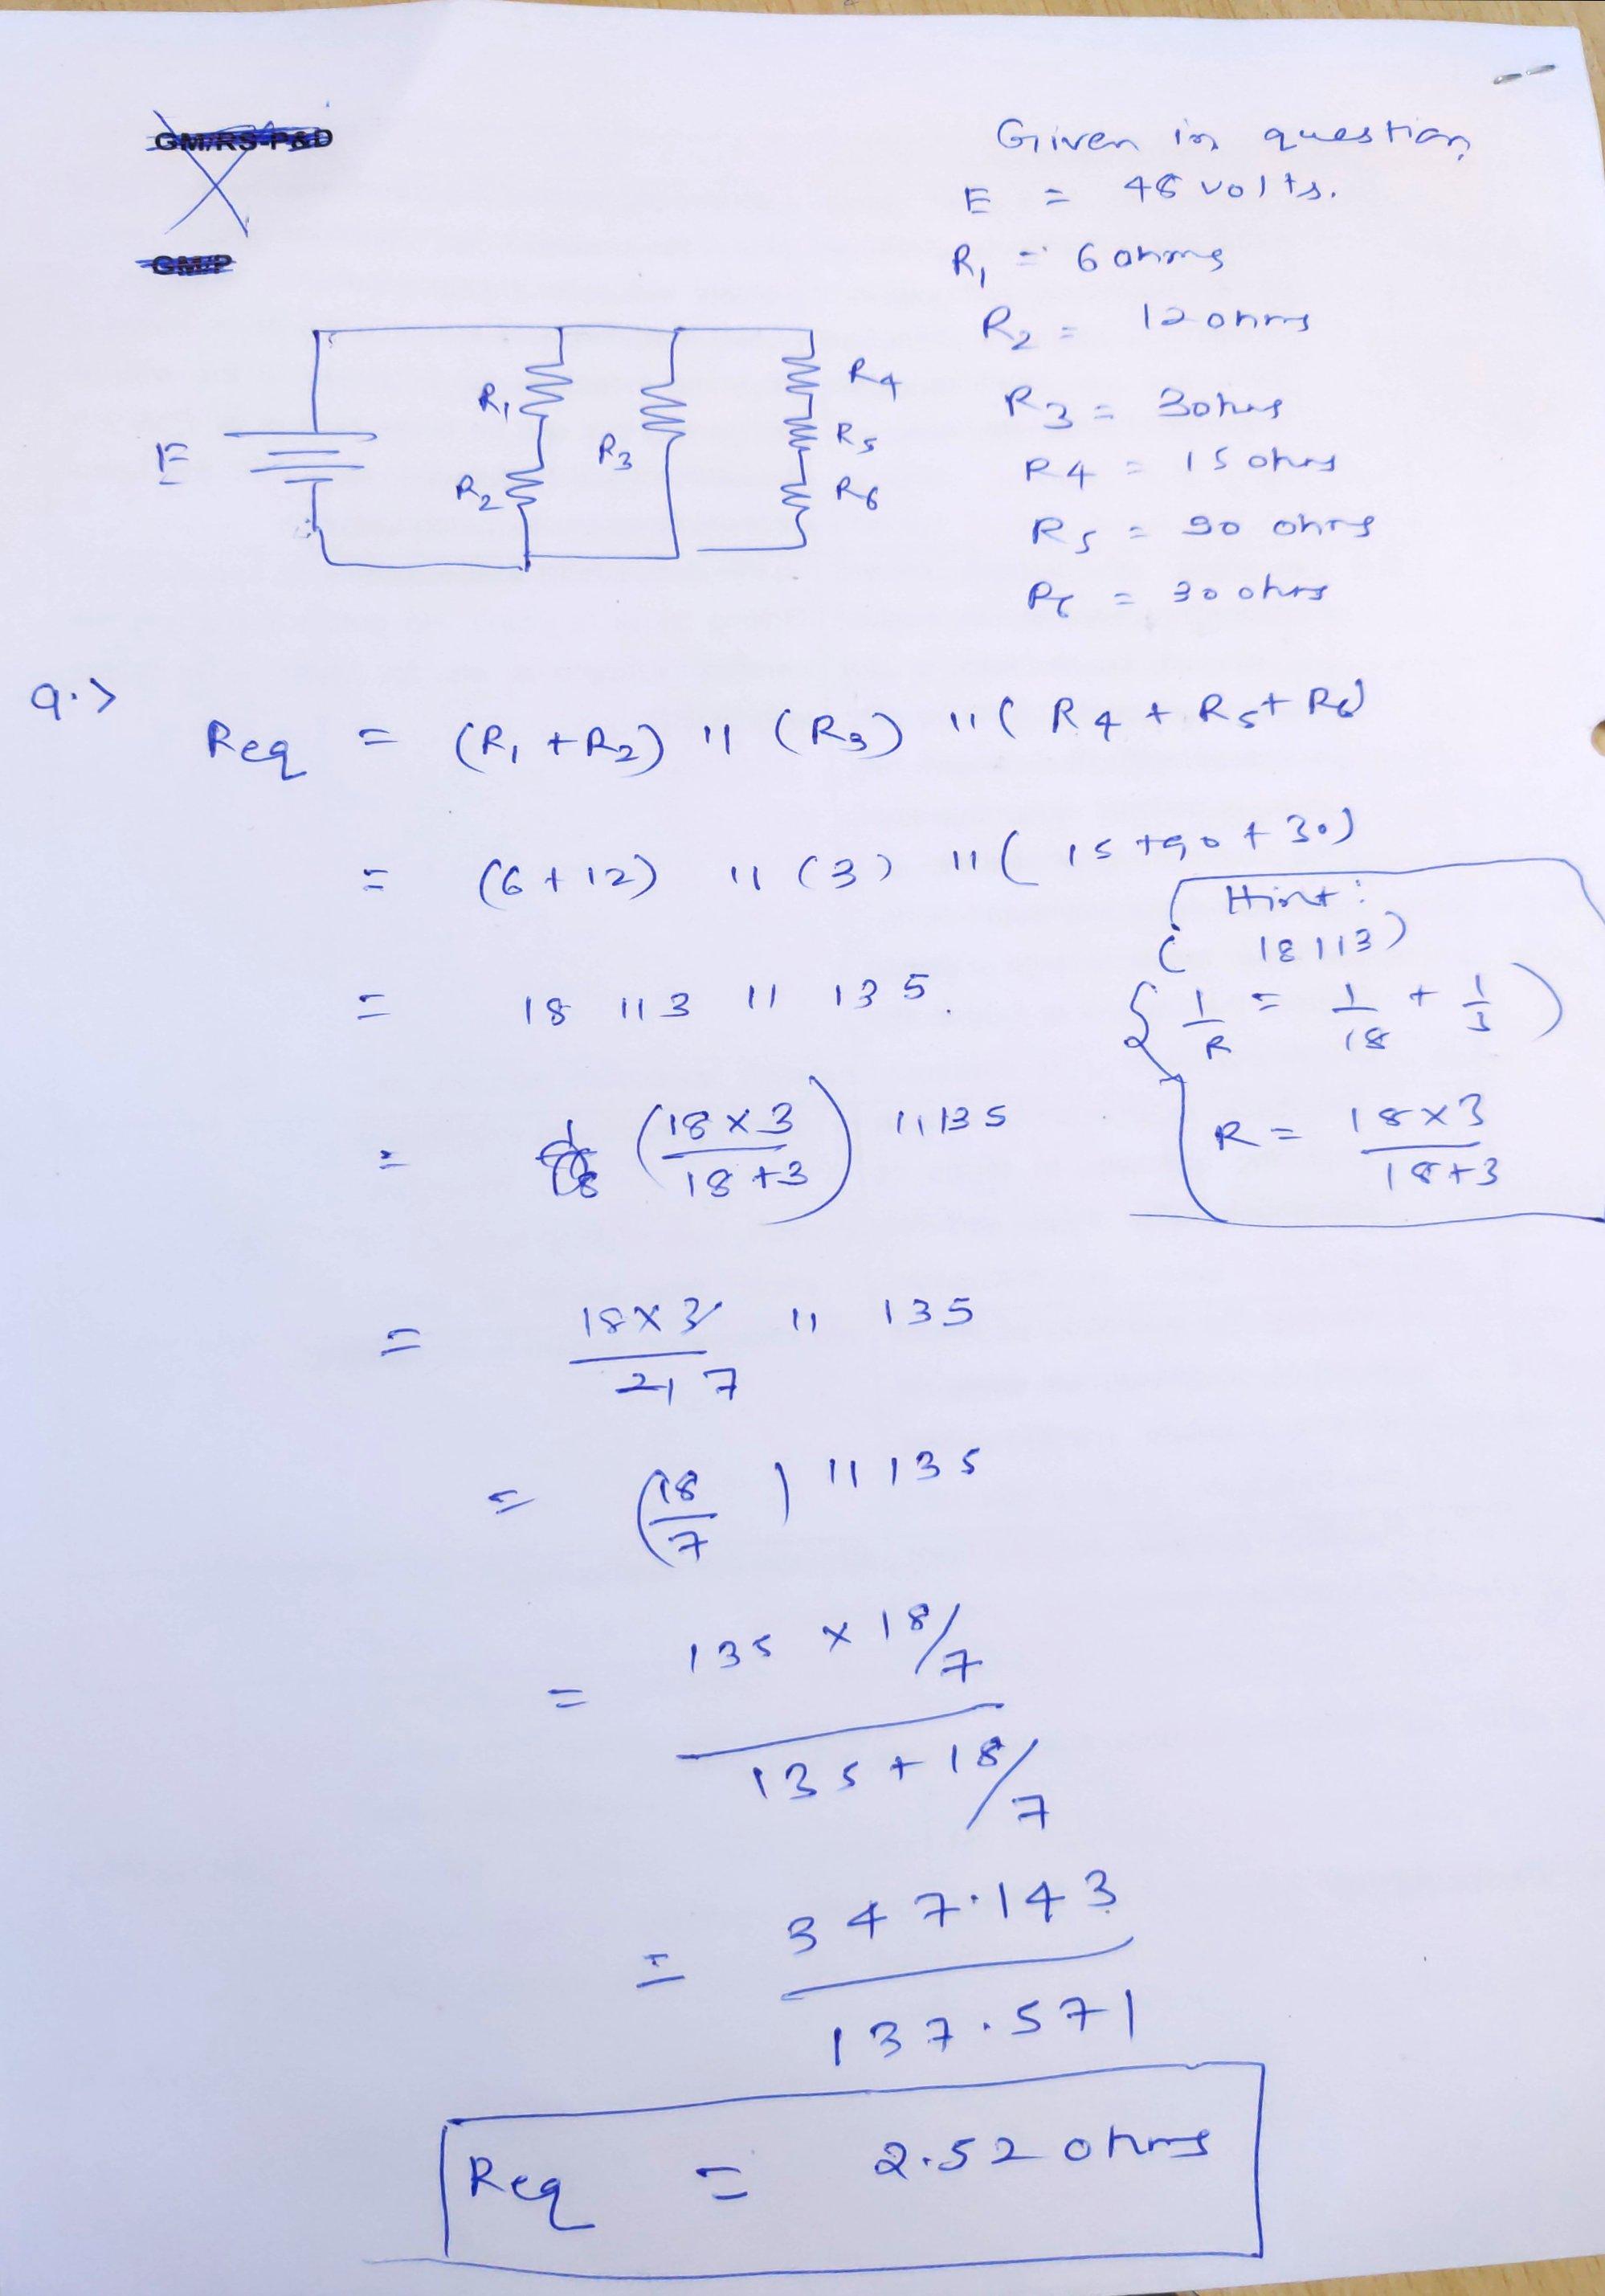 GM/RS-P&D
GM/P
Given in question
E = 48 volts.
R1 = 6 ohms
R2 = 12 ohms
R3 = 3 ohms
R4 = 15 ohms
R5 = 90 ohms
R6 = 30 ohms
E
R1
R2
R3
R4
R5
R6
a.>
Req = (R1 + R2) || (R3) || (R4 + R5 + R6)
= (6 + 12) || (3) || (15 + 90 + 30)
= 18 || 3 || 135.
Hint:
(18 || 3)
{ 1/R = 1/18 + 1/3 )
R = 18 x 3 / 18 + 3
= (18 x 3 / 18 + 3) || 135
= 18 x 3 / 21 7 || 135
= (18 / 7) || 135
= 135 x 18/7
135 + 18/7
= 347.143
137.571
Req = 2.52 ohms